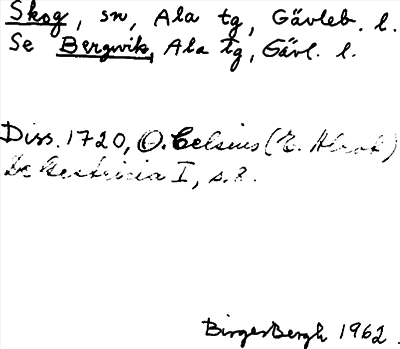 Skog, sn, Ala tg, Gävleb. l.
Se Bergvik, Ala tg, Gävl. l.
Diss. 1720, O. Celsius (E.
De Gestricia I, s. 2.
Birger Bergh 1962.